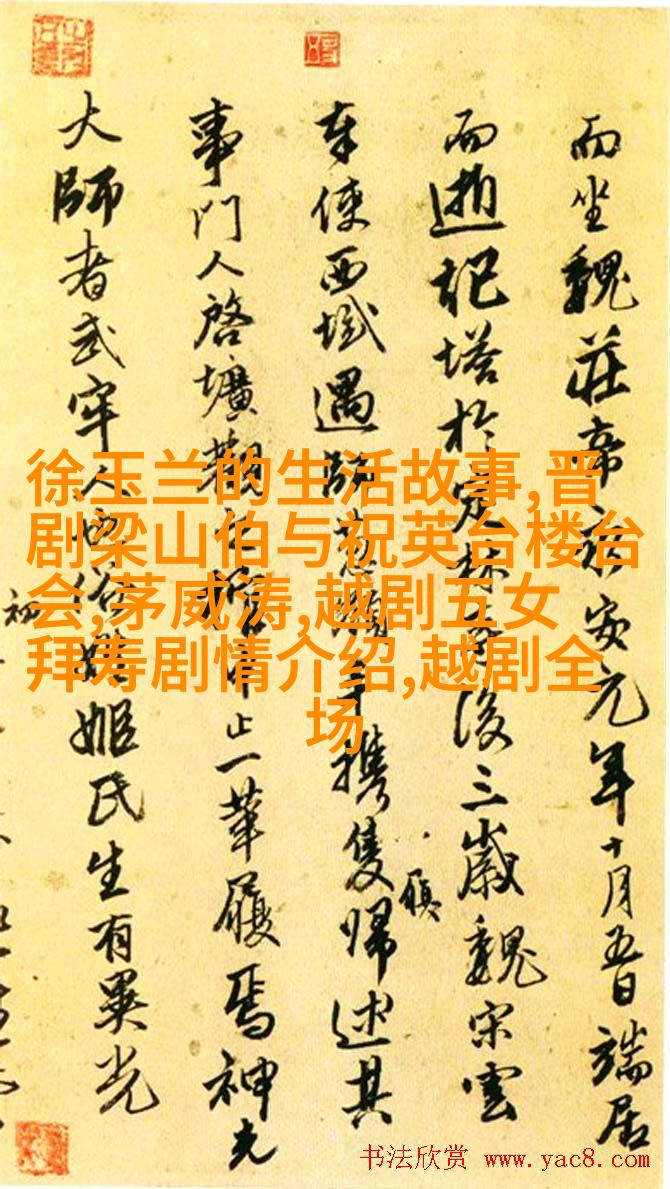 而坐魏莊帝永安元年十月五日端居
而逝記塔於定林寺後三歲魏宋雲
奉使西域遇師葱嶺手携隻歸述其
履
事門人啓壙觀化止一革履焉神光
大師者武牢人也俗姓姬氏生有異光
徐玉兰的生活故事,晋
剧梁山伯与祝英台楼台
会,茅威涛,越剧五女
拜寿剧情介绍,越剧全
场
书法欣赏 www.yac8.com